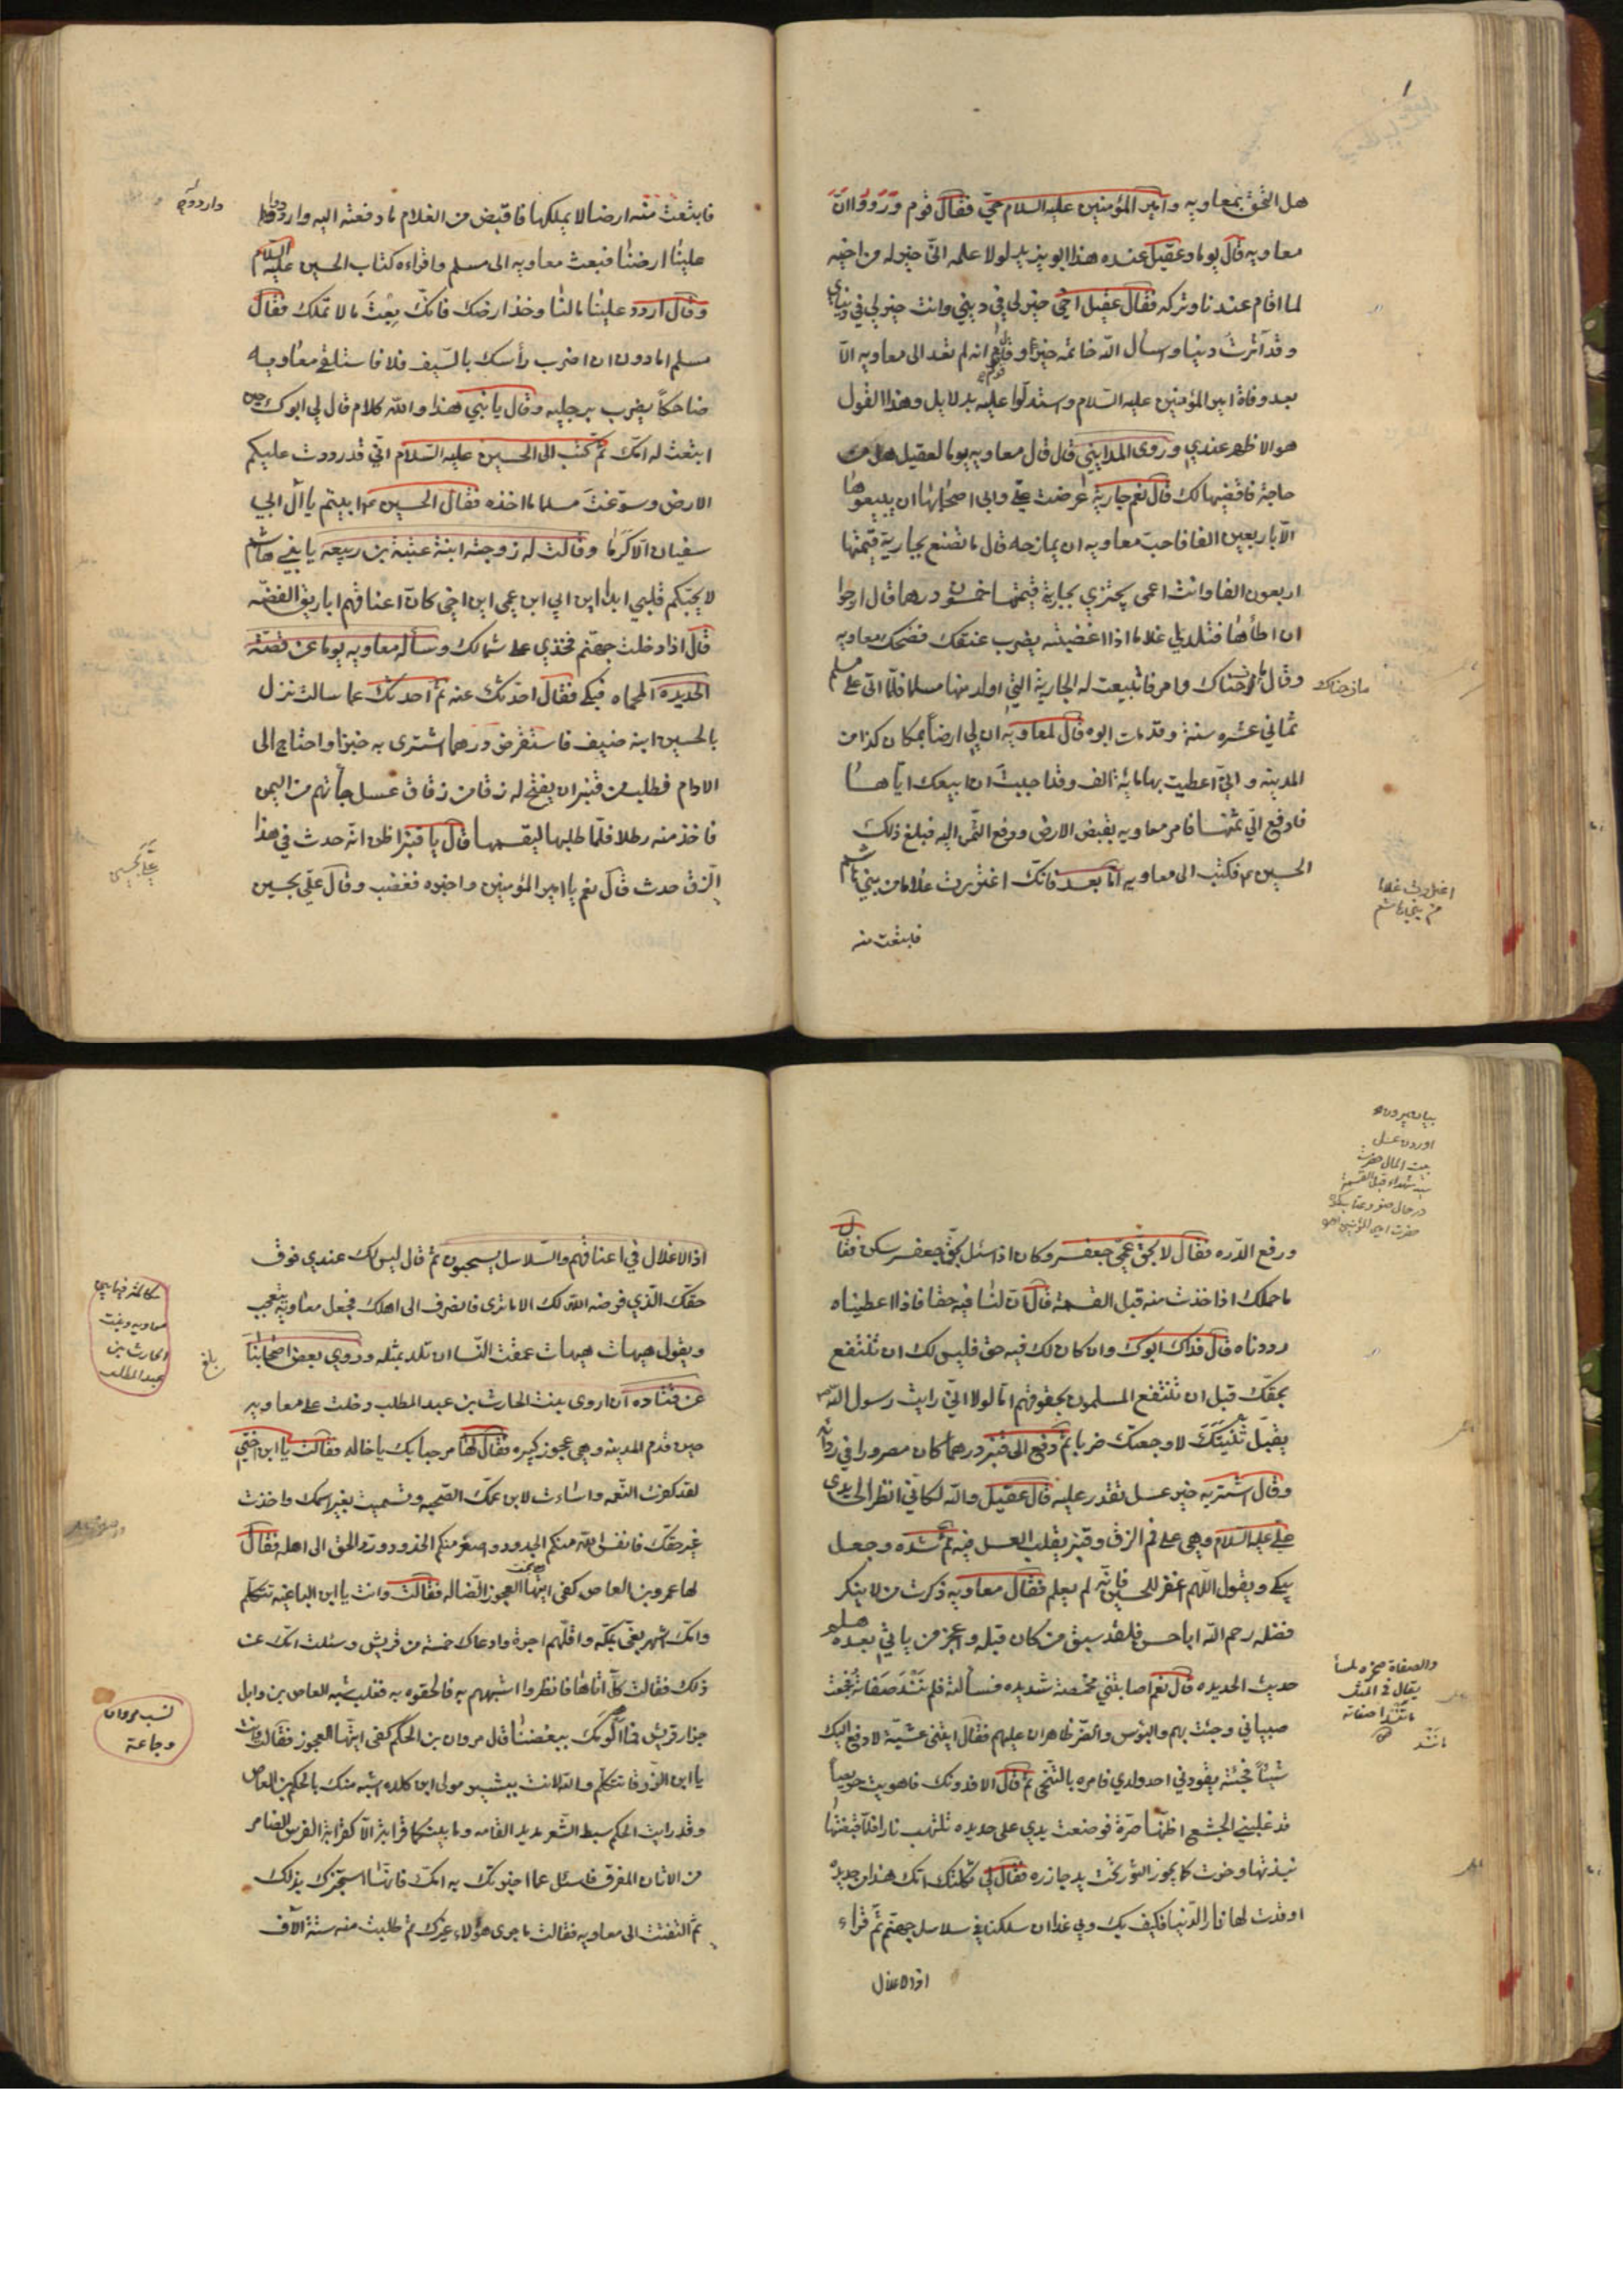 هل التحق بمعاويه وامير المؤمنين عليه السلام حيّ فقال قوم ورووا انّ
معاويه قال يوما وعقيل عنده هذا ابو يزيد لولا علمه انّي خير له من اخيه
لما اقام عندنا وتركه فقال عقيل اخي خير لي في ديني وانت خير لي في دنياي
وقد آثرت دنيا واسأل الله خاتمة خير وقال قوم انه لم يفد الى معاويه الّا
بعد وفاة امير المؤمنين عليه السّلام واستدلّوا عليه بدلايل وهذا القول
هو الاظهر عندي وروى المدايني قال قال معاويه يوما لعقيل هل من
حاجة فاقضيها لك قال نعم جارية عرضت عليّ وابى اصحابها ان يبيعوها
الّا باربعين الفا فاحبّ معاويه ان يمازحه قال ما تصنع بجارية قيمتها
اربعون الفا وانت اعمى تجتزي بجارية قيمتها خمسون درهما قال ارجوا
ان اطأها فتلد لي غلاما اذا اغضبته يضرب عنقك فضحك معاويه
وقال مازحناك وامر فابتيعت له الجارية التي اولد منها مسلما فلمّا اتى على مسلم
مازحناك
ثماني عشره سنة وقد مات ابوه قال لمعاويه ان لي ارضا بمكان كذا من
المدينه واني اعطيت بها ماية الف وقد احببت ان ابيعك ايّاها
فادفع اليّ ثمنها فامر معاويه بقبض الارض ودفع الثمن اليه فبلغ ذلك
الحسين ع فكتب الى معاويه امّا بعد فانّك اغتررت غلاما من بني هاشم
اغتررت غلاما
من بني هاشم
فابتعت منه
فابتعت منه ارضا لا يملكها فاقبض من الغلام ما دفعته اليه واردد
واردد
علينا ارضنا فبعث معاويه الى مسلم واقراءه كتاب الحسين عليه السلام
وقال اردد علينا مالنا وخذ ارضك فانّك بعت ما لا تملك فقال
مسلم اما دون ان اضرب رأسك بالسّيف فلا فاستلقى معاويه
ضاحكاً يضرب برجليه وقال يا بني هذا والله كلام قال لي ابوك حين
ابتعت له امّك ثم كتب الى الحسين عليه السّلام انّي قد رددت عليكم
الارض وسوّغت مسلما ما اخذه فقال الحسين ع ابيتم يا آل ابي
سفيان الّا كرما وقالت له زوجته ابنة عتبة بن ربيعه يا بني هاشم
لا يحبّكم قلبي ابدا اين ابي اين عمي اين اخي كانّ اعناقهم اباريق الفضّه
قال اذا دخلت جهنّم فخذي على شمالك وسأله معاويه يوما عن قصّة
الحديده المحماه فبكى فقال احدّثك عنه ثم احدثك عما سالت نزل
بالحسين ابنه ضيف فاستقرض درهما اشترى به خبزا واحتاج الى
الادام فطلب من قنبر ان يفتح له زقا من زقاق عسل جاءتهم من اليمن
فاخذ منه رطلا فلمّا طلبها ليقسمها قال يا قنبر اظن انّه حدث في هذا
الزّق حدث قال نعم يا امير المؤمنين واخبره فغضب وقال عليّ بحسين
عليّ بحسين
ورفع الدّره فقال لا بحق عمّي جعفر وكان اذا سئل بحقّ جعفر سكن فقال
ما حملك اذا خذت منه قبل القسمة قال انّ لنا فيه حقا فاذا اعطيناه
رددناه قال فداك ابوك وان كان لك فيه حق فليس لك ان تنتفع
بحقّك قبل ان تنتفع المسلمون بحقوقهم اما لولا انّي رايت رسول الله
يقبّل ثنيّتك لاوجعتك ضربا ثم دفع الى قنبر درهما كان مصرورا في ردائه
وقال اشتر به خير عسل تقدر عليه قال عقيل والله لكانّي انظر الى يدي
علي عليه السّلام وهي على فم الزق وقنبر يقلب العسل فيه ثم شده وجعل
يبكي ويقول اللّهم اغفر للحسين فانّه لم يعلم فقال معاويه ذكرت من لا ينكر
فضله رحم الله ابا حسن فلقد سبق من كان قبله واعجز من ياتي بعده هلم
حديث الحديده قال نعم اصابتني مخمصة شديده فسألته فلم تند صفاته فجمعت
والصفاة صخره ملسا
يقال في المثل
ما تندا صفاته
صبياني وجئت بهم والبؤس والضرّ ظاهران عليهم فقال ائتني عشيّة لادفع اليك
شيئاً فجئته يقودني احد ولدي فامره بالتنحّي ثم قال الا فدونك فاهويت حريصاً
قد غلبني الجشع اظنّها صرّة فوضعت يدي على حديده تلتهب نارا فلمّا قبضتها
نبذتها وخرت كما يخور الثور تحت يد جازره فقال لي ثكلتك امّك هذا من حديده
اوقدت لها نار الدّنيا فكيف بك وبي غدا ان سلكنا في سلاسل جهنّم ثم قراء
اذ الاغلال
اذ الاغلال في اعناقهم والسّلاسل يسحبون ثم قال ليس لك عندي فوق
حقّك الّذي فرضه الله لك الا ما ترى فانصرف الى اهلك فجعل معاويه يتعجّب
ويقول هيهات هيهات عمقت النّسا ان تلد بمثله وروي بعض اصحابنا
بلغ
عن قتاده ان اروى بنت الحارث بن عبد المطلب دخلت على معاويه
حين قدم المدينه وهي عجوز كبيره فقال لها مرحبا بك يا خاله فقالت يا ابن اختي
لقد كفرت النّعمه واسائت لابن عمّك الصّحبه وتسميت بغير اسمك واخذت
غير حقّك فاتعس الله منكم الجدود واصغر منكم الخدود وردّ الحق الى اهله فقال
لها عمرو بن العاص كفى ايّتها العجوز الضّاله فقالت وانت يا ابن الباغيه تتكلم
وامّك اشهر بغي بمكّه واقلّهم اجرة وادعاك خمسة من قريش وسئلت امّك عن
ذلك فقالت كلّ اتاها فانظروا اشبههم به فالحقوه به فغلب شبه العاص بن وايل
نسب مروان
وجماعة
جزار قريش فقال مروان بن الحكم كفى ايّتها العجوز فقالت وانت
يا ابن الزرقا تتكلم والله لانت ببشير مولى ابن كلده اشبه منك بالحكم بن العاص
وقد رايت الحكم سبط الشّعر مديد القامه وما بينكما قرابة الّا كقرابة الفرس الضامر
من الاتان المقرف فاسئل عما اخبرتك به امّك فانّها ستخبرك بذلك
ثم التفتت الى معاويه فقالت ما جرى هؤلاء غيرك ثم طلبت منه ستة الآف